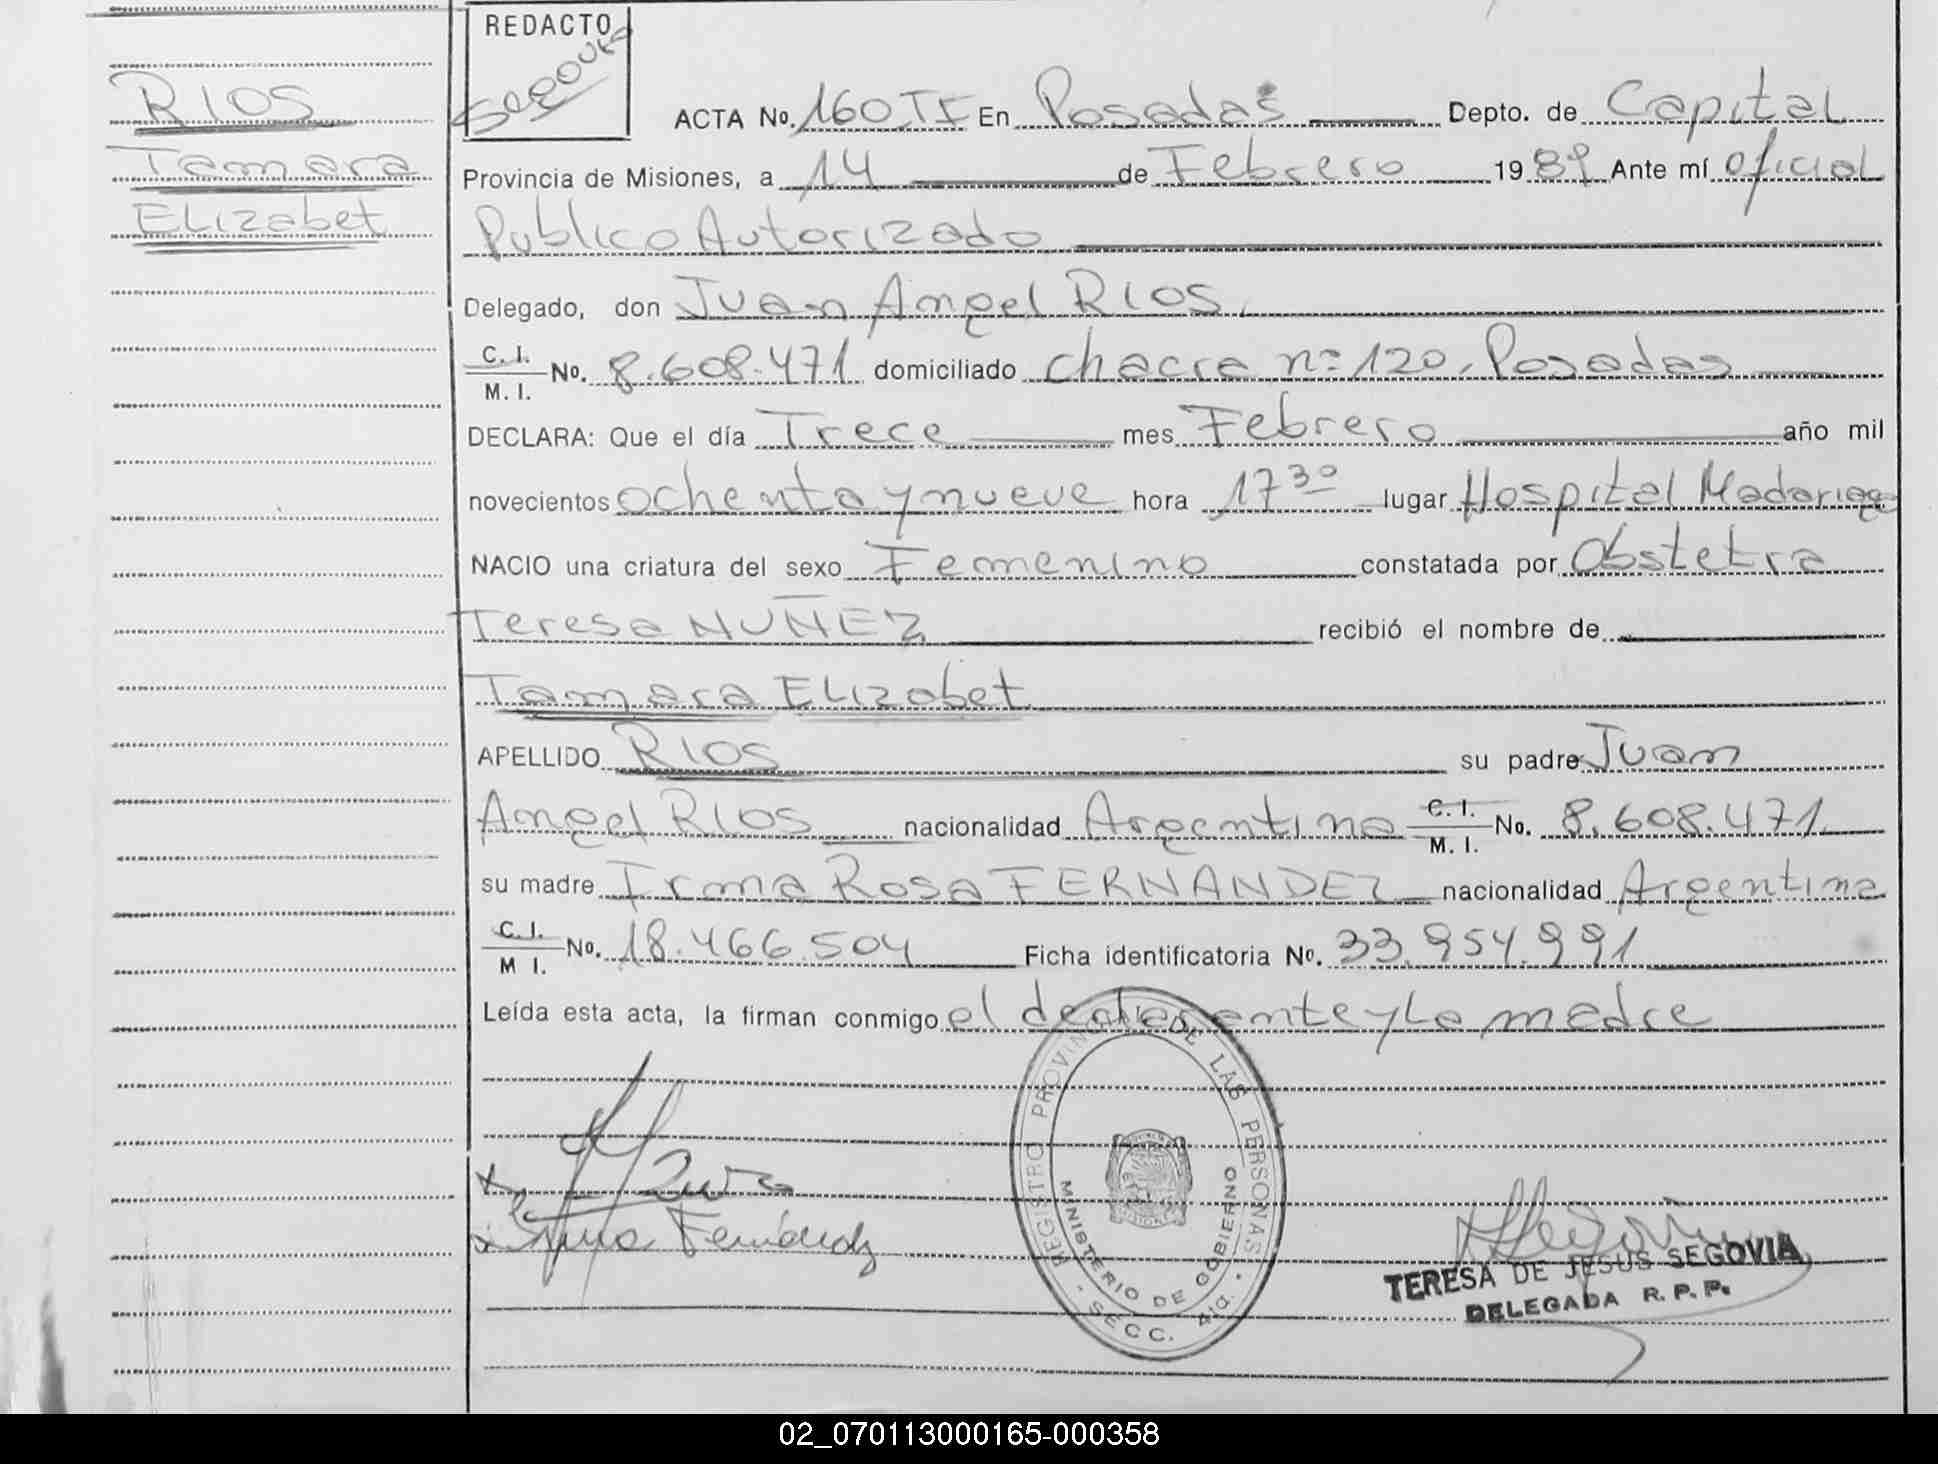 REDACTO
Segovia
RIOS
Tamara
ELizabet
ACTA No. 160.TI En Posadas Depto. de Capital
Provincia de Misiones, a 14 de Febrero 1989 Ante mí oficial
Publico Autorizado
Delegado, don Juan Angel RIOS,
C. I. / M. I. No. 8.608.471 domiciliado chacra nº 120, Posadas
DECLARA: Que el día Trece mes Febrero año mil
novecientos ochenta y nueve hora 17 30 lugar Hospital Madariaga
NACIO una criatura del sexo Femenino constatada por Obstetra
Teresa NUÑEZ recibió el nombre de
Tamara ELizabet
APELLIDO RIOS su padre Juan
Angel RIOS nacionalidad Argentino C. I. / M. I. No. 8.608.471
su madre Irma Rosa FERNANDEZ nacionalidad Argentina
C. I. / M I. No. 18.466.504 Ficha identificatoria No. 33.954.991
Leída esta acta, la firman conmigo el declarante y la madre
REGISTRO PROVINCIAL DE LAS PERSONAS
MINISTERIO DE GOBIERNO
- SECC. 4ta. -
x Irma Fernández
TERESA DE JESUS SEGOVIA
DELEGADA R. P. P.
02_070113000165-000358